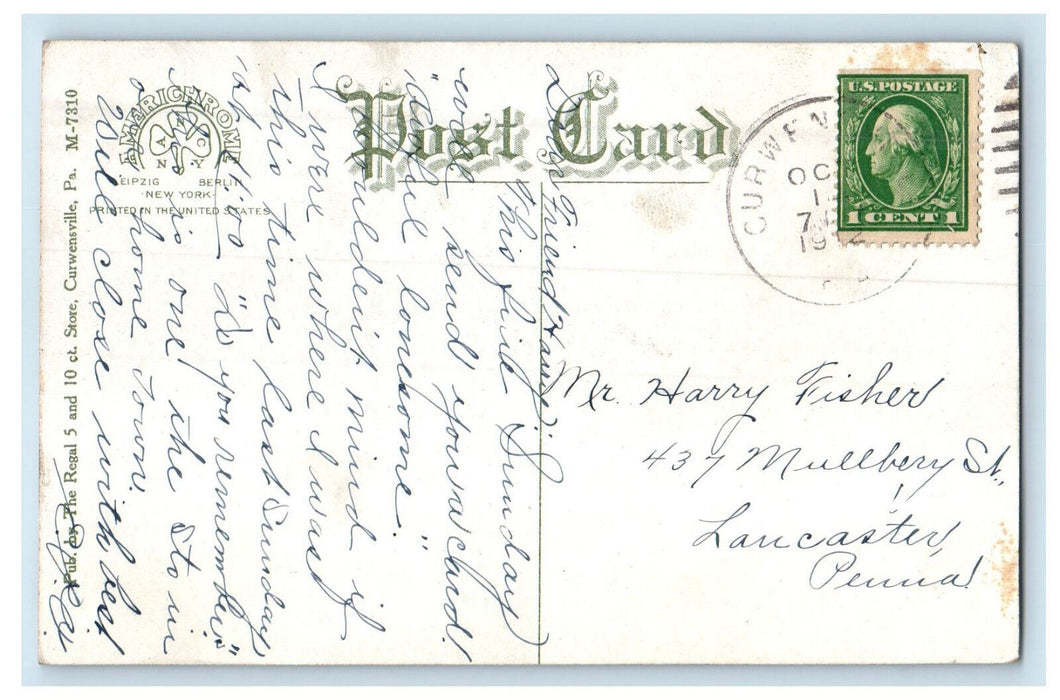 Post Card
AMERICHROME
A N C Y
LEIPZIG BERLIN
NEW YORK
PRINTED IN THE UNITED STATES
Pub. by The Regal 5 and 10 ct. Store, Curwensville, Pa. M-7310
U.S. POSTAGE
1 CENT 1
CURWEN
OC
7
1912
Friend Harry:
This fine Sunday
eve send you a card.
"awful lonesome."
Wouldent mind if
I were where I was
this time last Sunday
"do you remember"
is one the sto in
home Town.
Will close with best
Mr. Harry Fisher
437 Mullbery St.,
Lancaster,
Penna